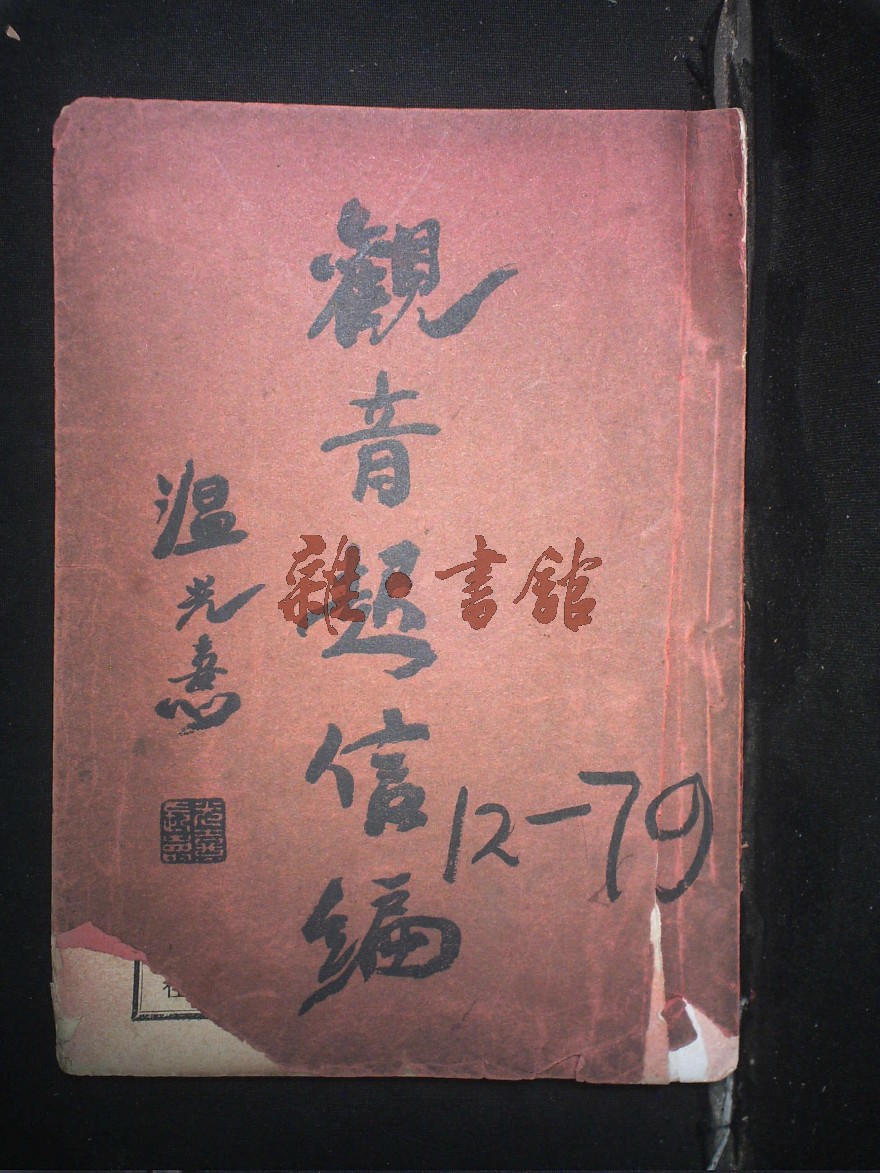 觀音起信編
温光熹
雜·書館
12-79